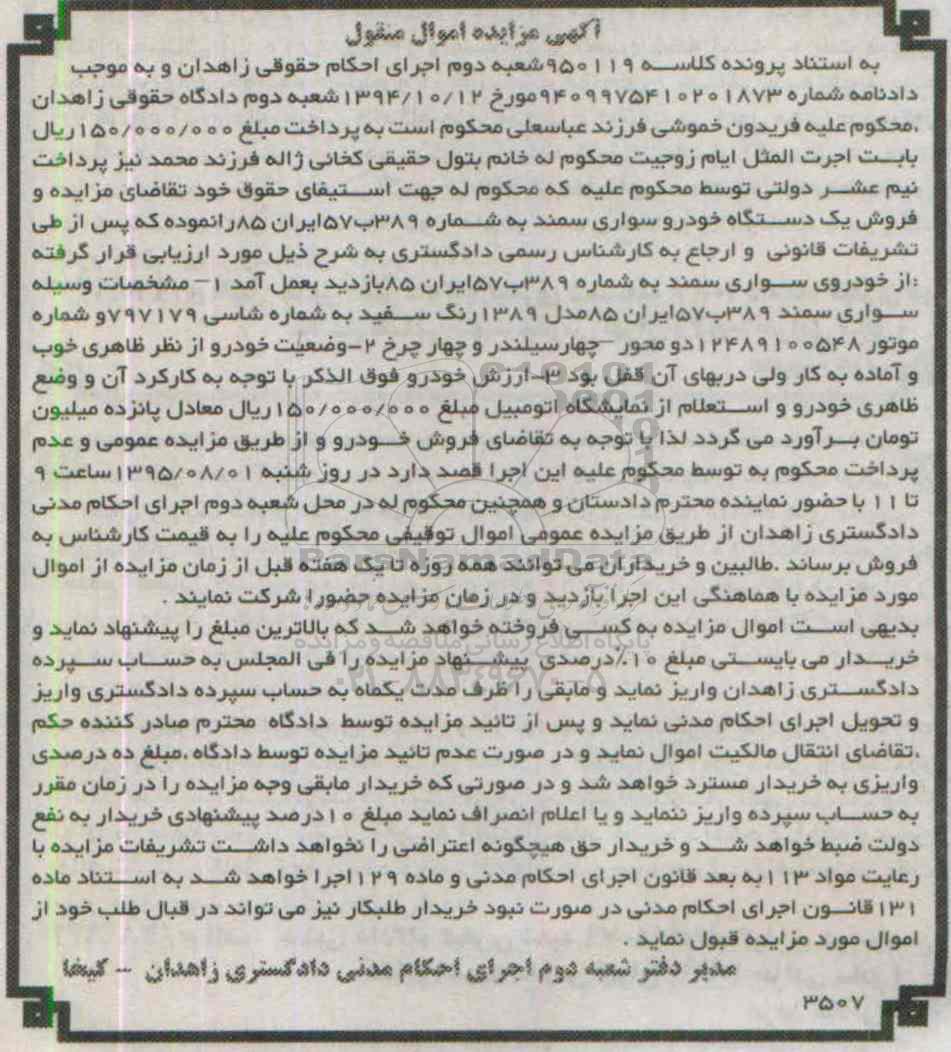 آگهی مزایده اموال منقول
به استناد پرونده کلاسه ۹۵۰۱۱۹شعبه دوم اجرای احکام حقوقی زاهدان و به موجب
دادنامه شماره ۹۴۰۹۹۷۵۴۱۰۲۰۱۸۷۳مورخ ۱۳۹۴/۱۰/۱۲شعبه دوم دادگاه حقوقی زاهدان
،محکوم علیه فریدون خموشی فرزند عباسعلی محکوم است به پرداخت مبلغ ۱۵۰/۰۰۰/۰۰۰ریال
بابت اجرت المثل ایام زوجیت محکوم له خانم بتول حقیقی کخائی ژاله فرزند محمد نیز پرداخت
نیم عشر دولتی توسط محکوم علیه که محکوم له جهت استیفای حقوق خود تقاضای مزایده و
فروش یک دستگاه خودرو سواری سمند به شماره ۳۸۹ب۵۷ایران ۸۵رانموده که پس از طی
تشریفات قانونی و ارجاع به کارشناس رسمی دادگستری به شرح ذیل مورد ارزیابی قرار گرفته
:از خودروی سواری سمند به شماره ۳۸۹ب۵۷ایران ۸۵بازدید بعمل آمد ۱– مشخصات وسیله
سواری سمند ۳۸۹ب۵۷ایران ۸۵مدل ۱۳۸۹رنگ سفید به شماره شاسی ۷۹۷۱۷۹و شماره
موتور ۱۲۴۸۹۱۰۰۵۴۸دو محور –چهارسیلندر و چهار چرخ ۲–وضعیت خودرو از نظر ظاهری خوب
و آماده به کار ولی دربهای آن قفل بود ۳–ارزش خودرو فوق الذکر با توجه به کارکرد آن و وضع
ظاهری خودرو و استعلام از نمایشگاه اتومبیل مبلغ ۱۵۰/۰۰۰/۰۰۰ریال معادل پانزده میلیون
تومان برآورد می گردد لذا با توجه به تقاضای فروش خودرو و از طریق مزایده عمومی و عدم
پرداخت محکوم به توسط محکوم علیه این اجرا قصد دارد در روز شنبه ۱۳۹۵/۰۸/۰۱ساعت ۹
تا ۱۱ با حضور نماینده محترم دادستان و همچنین محکوم له در محل شعبه دوم اجرای احکام مدنی
دادگستری زاهدان از طریق مزایده عمومی اموال توقیفی محکوم علیه را به قیمت کارشناس به
فروش برساند .طالبین و خریداران می توانند همه روزه تا یک هفته قبل از زمان مزایده از اموال
مورد مزایده با هماهنگی این اجرا بازدید و در زمان مزایده حضورا شرکت نمایند .
بدیهی است اموال مزایده به کسی فروخته خواهد شد که بالاترین مبلغ را پیشنهاد نماید و
خریدار می بایستی مبلغ ۱۰٪درصدی پیشنهاد مزایده را فی المجلس به حساب سپرده
دادگستری زاهدان واریز نماید و مابقی را ظرف مدت یکماه به حساب سپرده دادگستری واریز
و تحویل اجرای احکام مدنی نماید و پس از تائید مزایده توسط دادگاه محترم صادر کننده حکم
،تقاضای انتقال مالکیت اموال نماید و در صورت عدم تائید مزایده توسط دادگاه ،مبلغ ده درصدی
واریزی به خریدار مسترد خواهد شد و در صورتی که خریدار مابقی وجه مزایده را در زمان مقرر
به حساب سپرده واریز ننماید و یا اعلام انصراف نماید مبلغ ۱۰درصد پیشنهادی خریدار به نفع
دولت ضبط خواهد شد و خریدار حق هیچگونه اعتراضی را نخواهد داشت تشریفات مزایده با
رعایت مواد ۱۱۳به بعد قانون اجرای احکام مدنی و ماده ۱۲۹اجرا خواهد شد به استناد ماده
۱۳۱قانون اجرای احکام مدنی در صورت نبود خریدار طلبکار نیز می تواند در قبال طلب خود از
اموال مورد مزایده قبول نماید .
مدیر دفتر شعبه دوم اجرای احکام مدنی دادگستری زاهدان – کیخا
۳۵۰۷
ParsNamadData
پایگاه اطلاع رسانی مناقصه و مزایده
۰۲۱-۸۸۳۴۹۶۷۰-۵